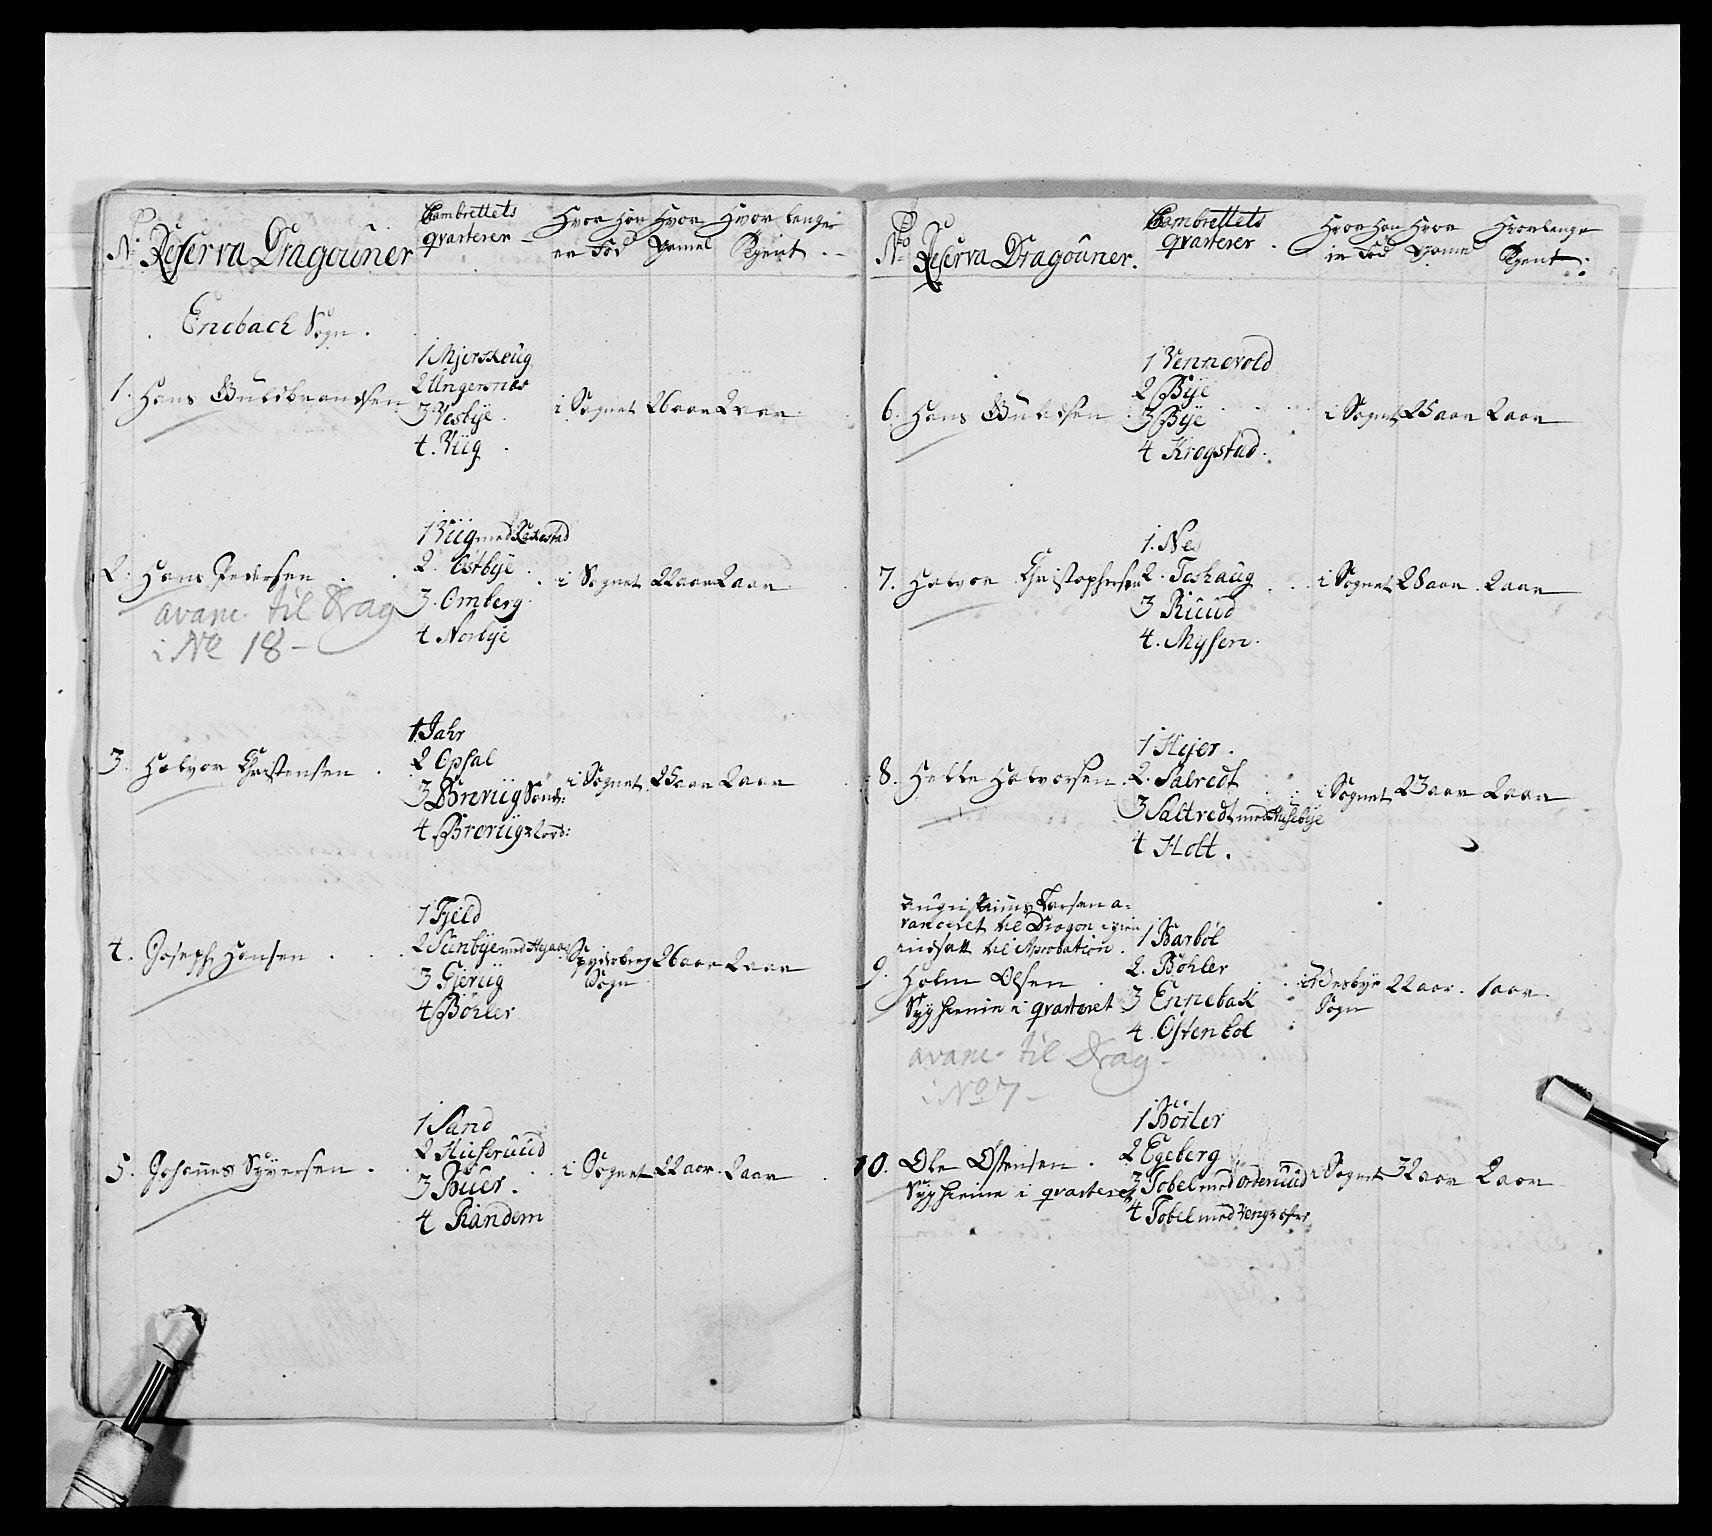 No Reserva Dragouner
Cambrettets qvarterer
Hvor han er fød
Hvor Gamel
Hvor lenge Tient
Enebach Sogn.
1. Hans Guldbrandsen
1 Mjerskoug
2 Ungersnes
3 Vesbÿe
4. Viig
i Sognet 26 aar 2 aar
2. Hans Pedersen
avanc. til Drag
i No 18 –
1 Viig med
2. Østbÿe
3. Omberg
4 Norbÿe
i Sognet 22 aar 2 aar
3. Halvor Christensen
1 Jahr
2 Opsal
3 Breviig Sønd:
4 Breviig Nord:
i Sognet 25 aar 2 aar
4. Joseph Hansen
1 Fjeld
2 Sunbÿe med
3 Gjeriig
4 Bøhler
Spydeberg Sogn
26 aar 2 aar
5. Johannes Syversen
1 Sand
2 Huseruud
3 Buer.
4 Random
i Sognet 22 aar 2 aar
No Reserva Dragouner.
Cambrettets qvarterer
Hvor han er fød
Hvor Gamel
Hvor lenge Tient
6. Hans Guldsen
1 Vennevold
2 Bÿe
3 Bÿe
4 Krogstad
i Sognet 25 aar 2 aar
7. Halvor Christophersen
1. Nes
2. Toshaug
3 Ruud
4. Mysen
i Sognet 28 aar 2 aar
8. Helle Halvorsen
1 Hejer
2. Salredt
3 Saltredt med Husebÿe
4 Holt.
i Sognet 23 aar 2 aar
Larsen a-
vanceret til Dragon igien
indsatt til Aprobation
9. Holm Olsen
i qvarteret
avanc. til Drag –
i No 7 –
1 Barbøl
2. Bøhler
3 Ennebak
4. Østenbøl
i Vesbÿe Sogn
22 aar 1 aar
10. Ole Østensen
i qvarteret
1 Börter
2 Egeberg
3 Tobel med
4 Tobel med
i Sognet 32 aar 2 aar